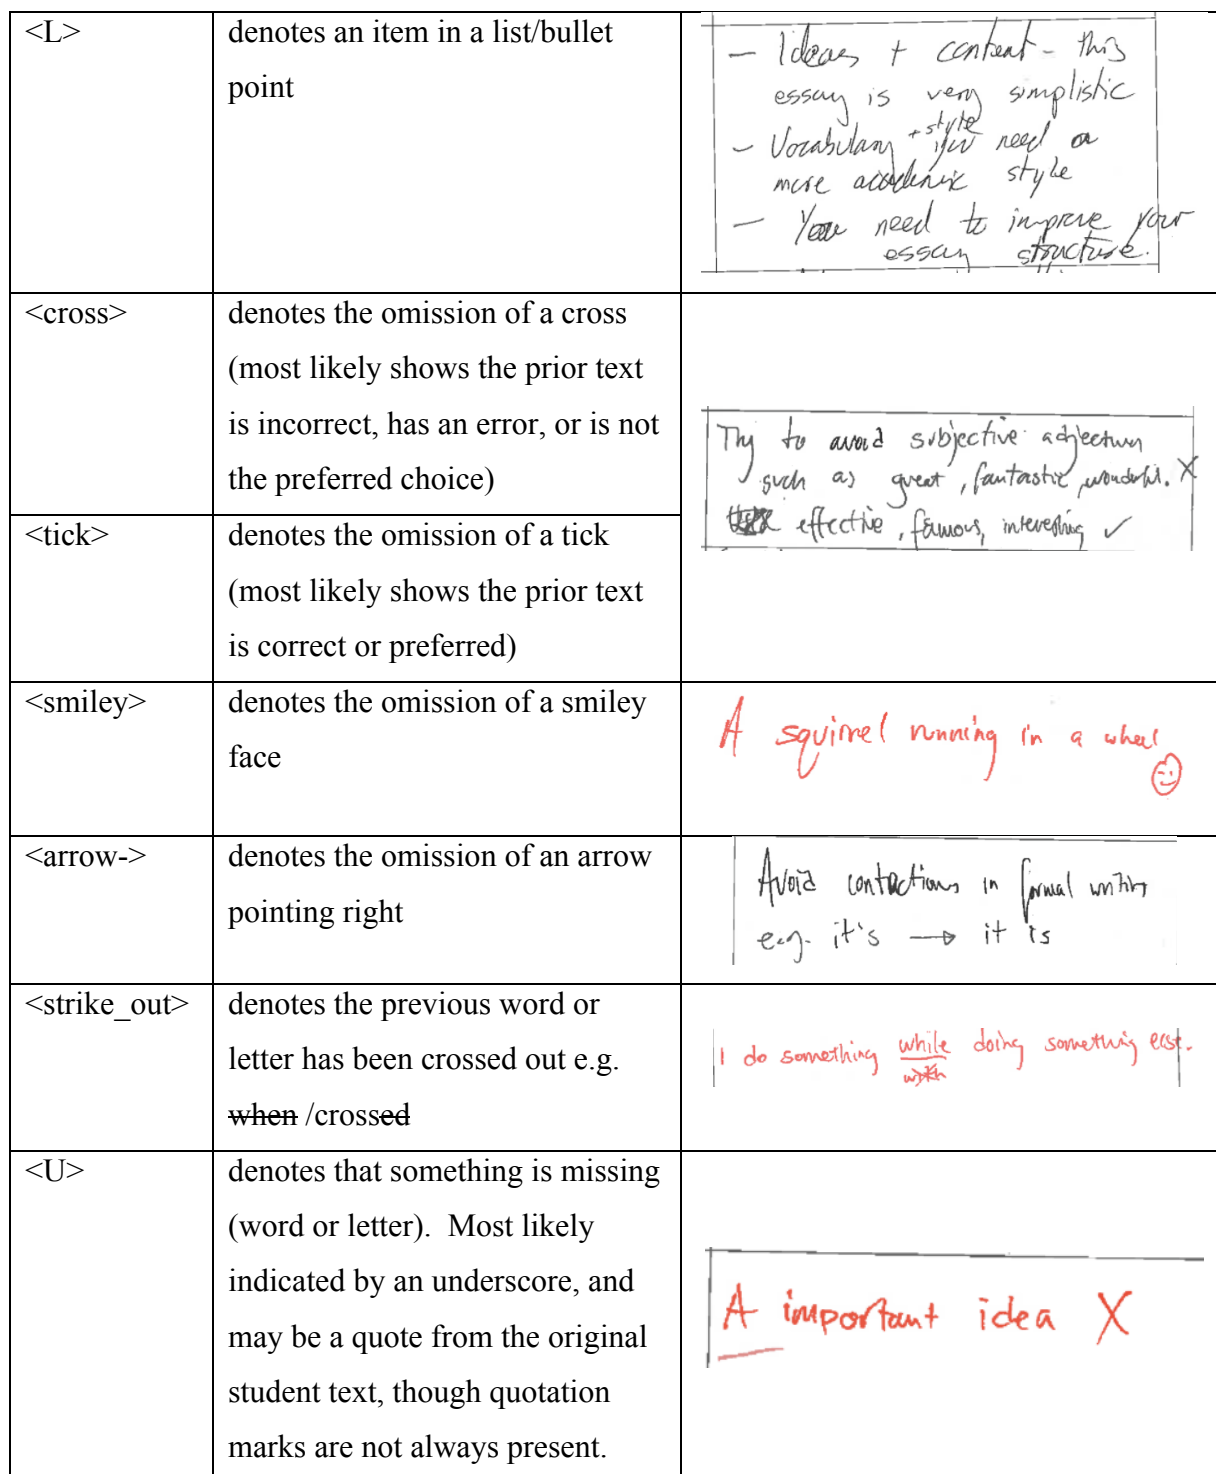 <L>
denotes an item in a list/bullet
point
– Ideas + content – this
essay is very simplistic
– Vocabulary + style you need a
more academic style
– You need to improve your
essay structure.
<cross>
denotes the omission of a cross
(most likely shows the prior text
is incorrect, has an error, or is not
the preferred choice)
Try to avoid subjective adjectives
such as great, fantastic, wonderful. X
effective, famous, interesting ✓
<tick>
denotes the omission of a tick
(most likely shows the prior text
is correct or preferred)
<smiley>
denotes the omission of a smiley
face
A squirrel running in a wheel
<arrow->
denotes the omission of an arrow
pointing right
Avoid contractions in formal writing
e.g. it's → it is
<strike_out>
denotes the previous word or
letter has been crossed out e.g.
when /crossed
I do something while doing something else.
<U>
denotes that something is missing
(word or letter).  Most likely
indicated by an underscore, and
may be a quote from the original
student text, though quotation
marks are not always present.
A important idea X